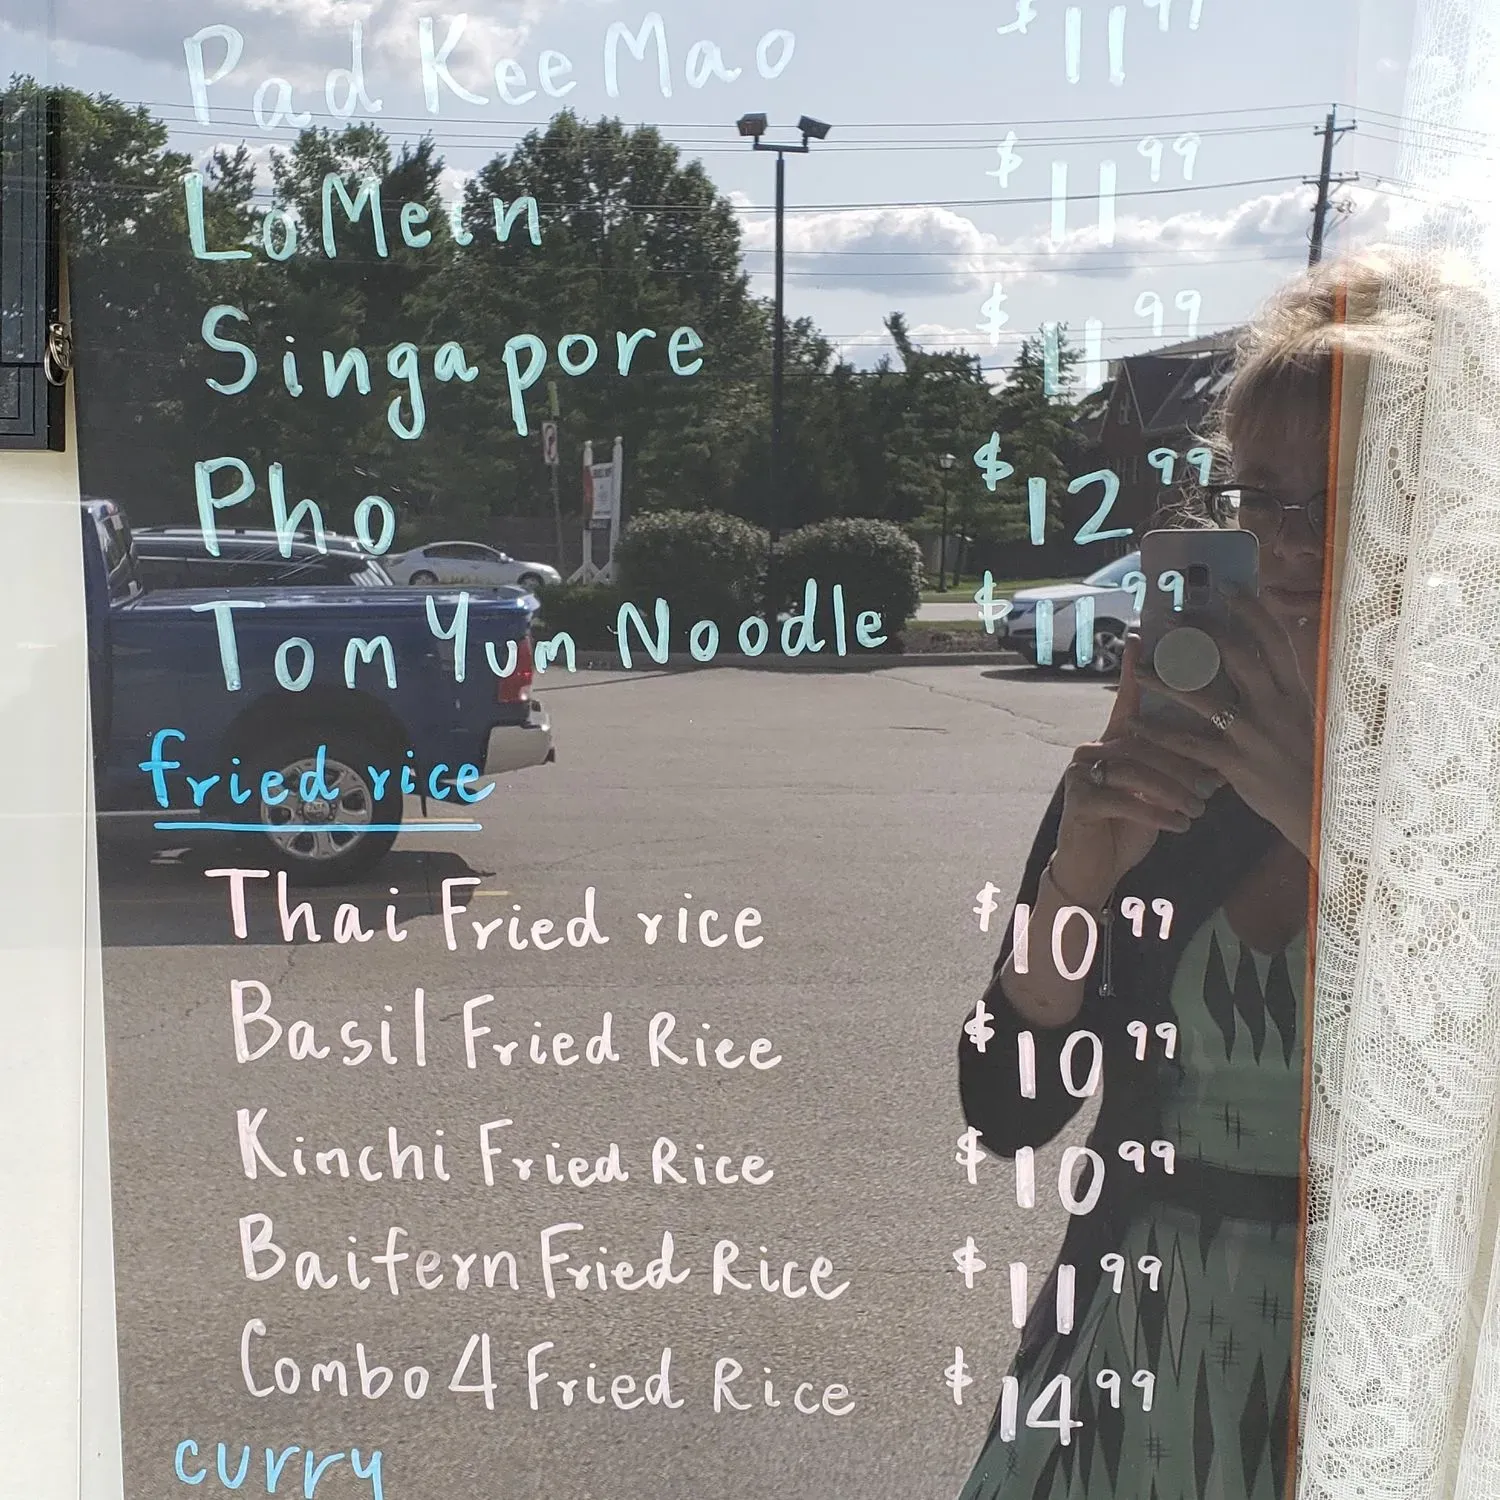 Pad Kee Mao $11 99
LoMein $11 99
Singapore $11 99
Pho $12 99
Tom Yum Noodle $11 99
fried rice
Thai Fried rice $10 99
Basil Fried Rice $10 99
Kinchi Fried Rice $10 99
Baifern Fried Rice $11 99
Combo 4 Fried Rice $14 99
curry